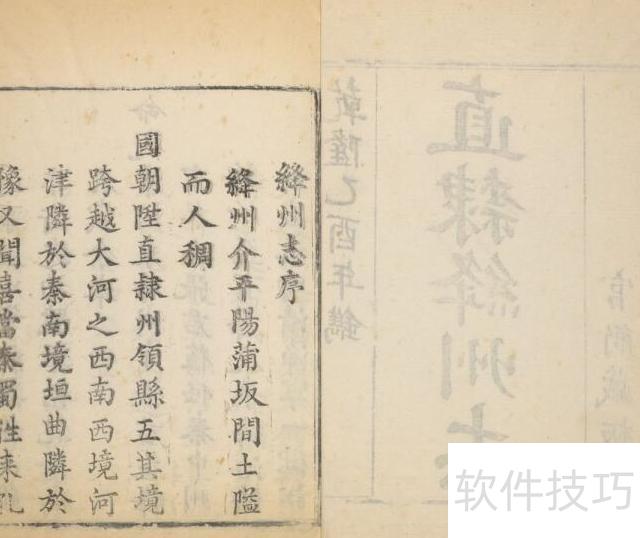 直隸絳州志
乾隆乙酉年鐫
絳州志序
絳州介平陽蒲坂間土隘
而人稠
國朝陞直隸州領縣五其境
跨越大河之西南西境河
津隣於秦南境垣曲隣於
豫又聞喜當秦蜀往來孔
软件技巧